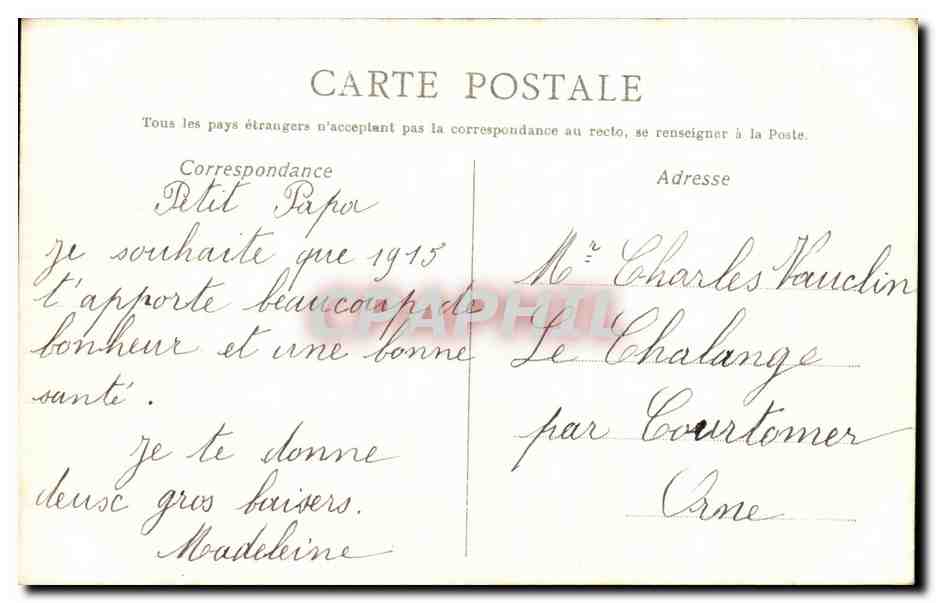 CARTE POSTALE
Tous les pays étrangers n'acceptent pas la correspondance au recto, se renseigner à la Poste.
Correspondance
Petit Papa
Je souhaite que 1915
t'apporte beaucoup de
bonheur et une bonne
santé.
Je te donne
deux gros baisers.
Madeleine
Adresse
Mr Charles Vauclin
Le Chalange
par Courtomer
Orne
CPAPHIL